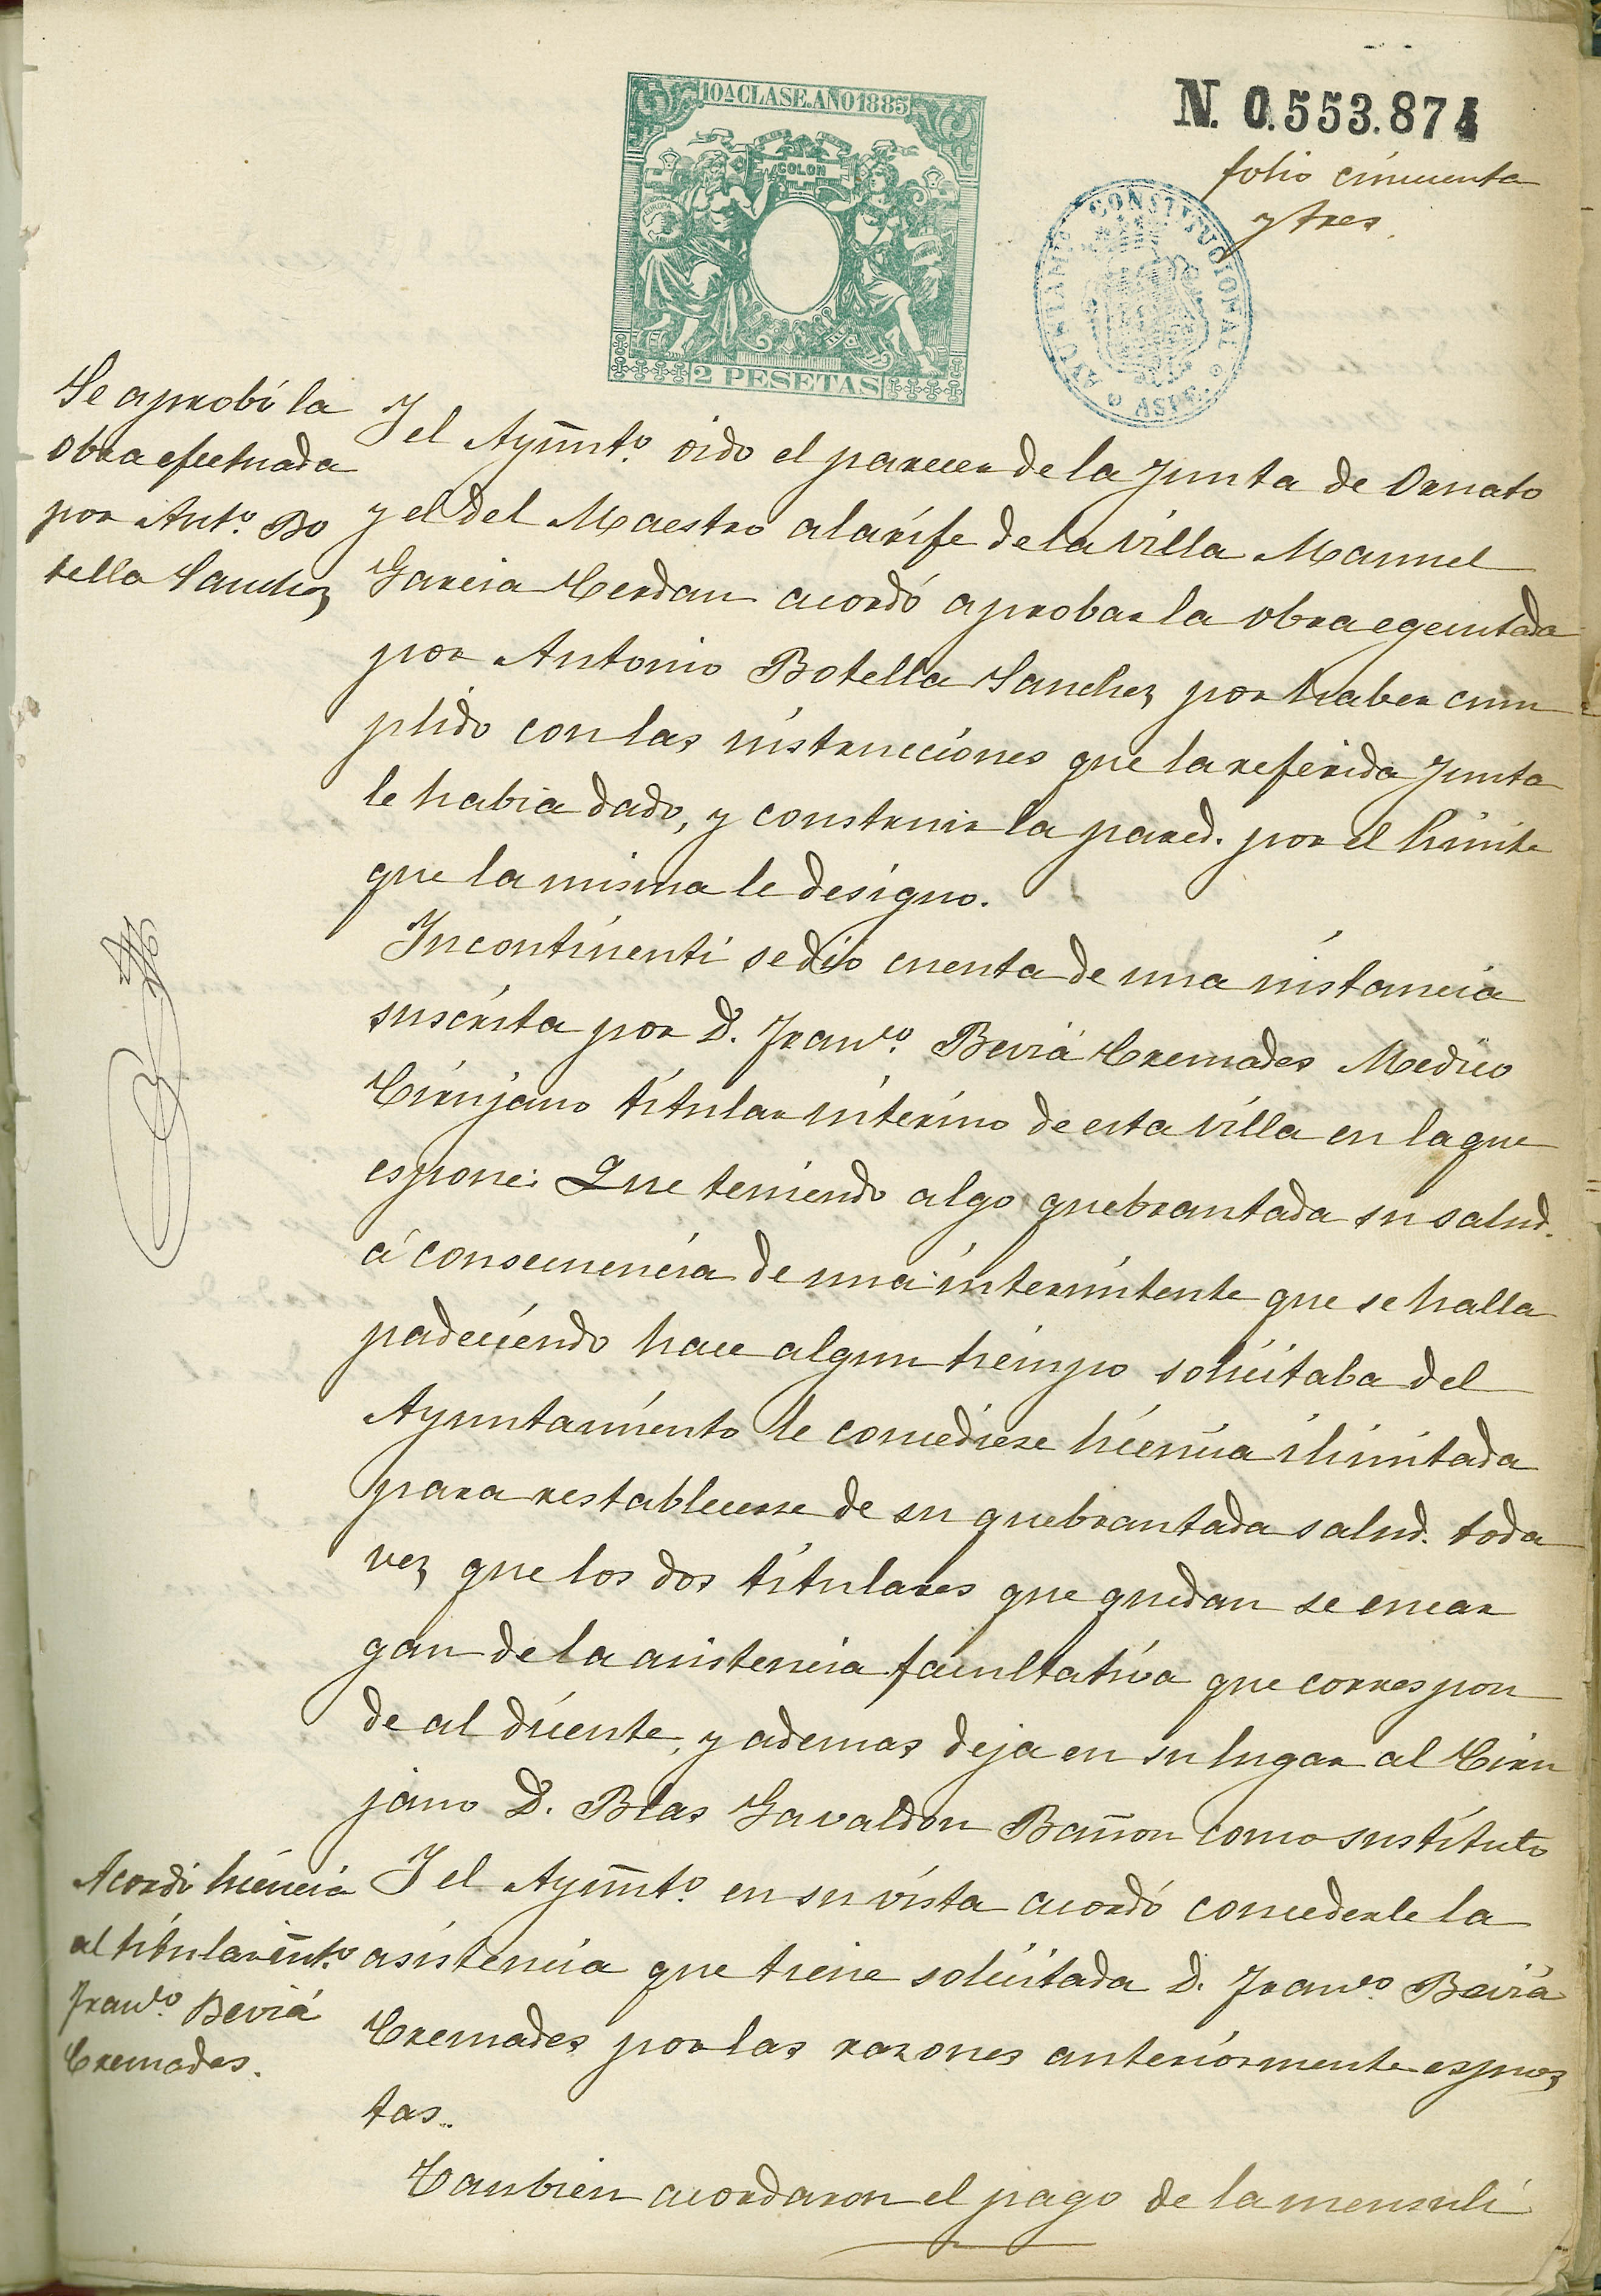 10ª CLASE. AÑO 1885
COLON
EUROPA
2 PESETAS
N. 0.553.874
folio cincuenta
y tres.
AYUNTAMIENTO CONSTITUCIONAL
ASPE
Se aprobó la
obra efectuada
por Antº. Bo
tella Sanchez
Y el Ayũntº. oido el parecer de la Junta de Ornato
y el del Maestro alarife de la villa Manuel
Garcia Cerdan acordó aprobar la obra egecutada
por Antonio Botella Sanchez por haber cum
plido con las instrucciones que la referida Junta
le habia dado, y construir la pared. por el limite
que la misma le designo.
Incontinenti se dió cuenta de una instancia
suscrita por D. Franco. Beviá Cremades Medico
Cirujano titular interino de esta villa en la que
espone: Que teniendo algo quebrantada su salud.
á consecuencia de una intermitente que se halla
padeciendo hace algun tiempo solicitaba del
Ayuntamiento le concediese licencia ilimitada
para restablecerse de su quebrantada salud. toda
vez que los dos titulares que quedan se encar
gan de la asistencia facultativa que correspon
de al dicente, y ademas deja en su lugar al Ciru
jano D. Blas Gavaldon Bañon como sustituto
Acordó licencia
al titular int.º
Franco. Beviá
Cremades.
Y el Ayũntº. en su vista acordó concederle la
asistencia que tiene solicitada D. Franco. Beviá
Cremades por las razones anteriormente espues
tas..
Tambien acordaron el pago de la mensuli